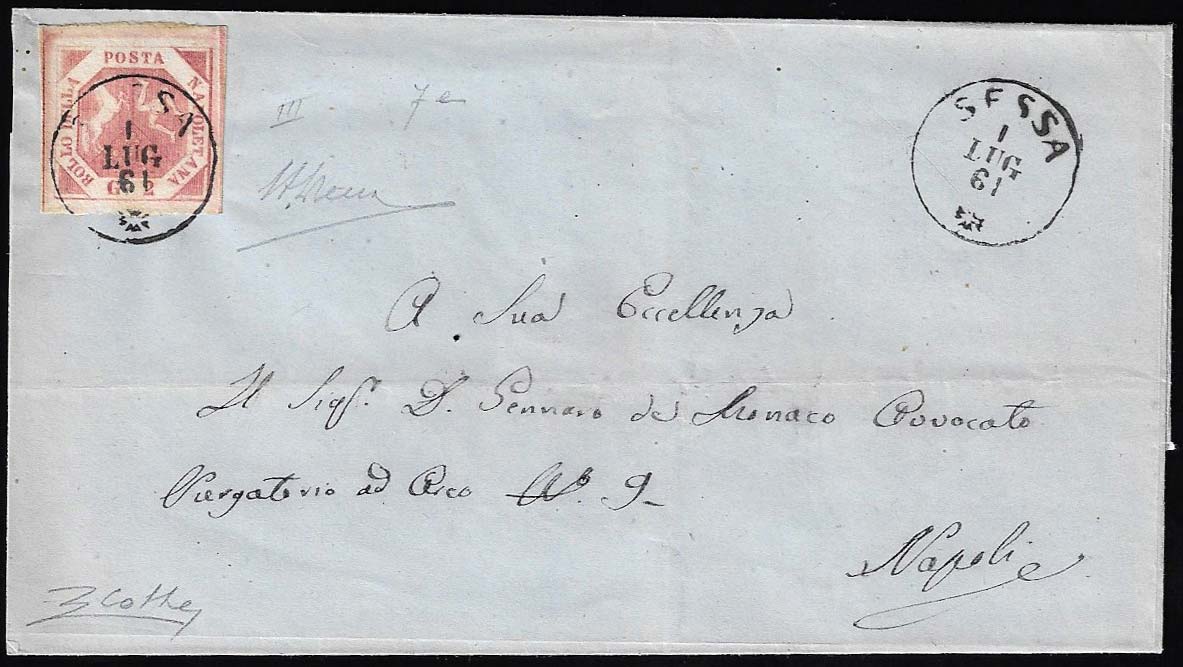 POSTA
NAPOLETANA
BOLLO DELLA
G. 2
SESSA
1
LUG
61
SESSA
1
LUG
61
III 7e
A Sua Eccellenza
Il Sigr. D. Gennaro del Monaco Avvocato
Purgatorio ad Arco No. 9
Napoli